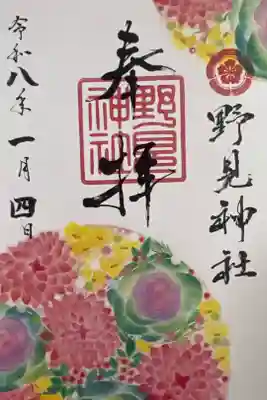 野見神社
奉拝
野見神社
令和八年
一月四日